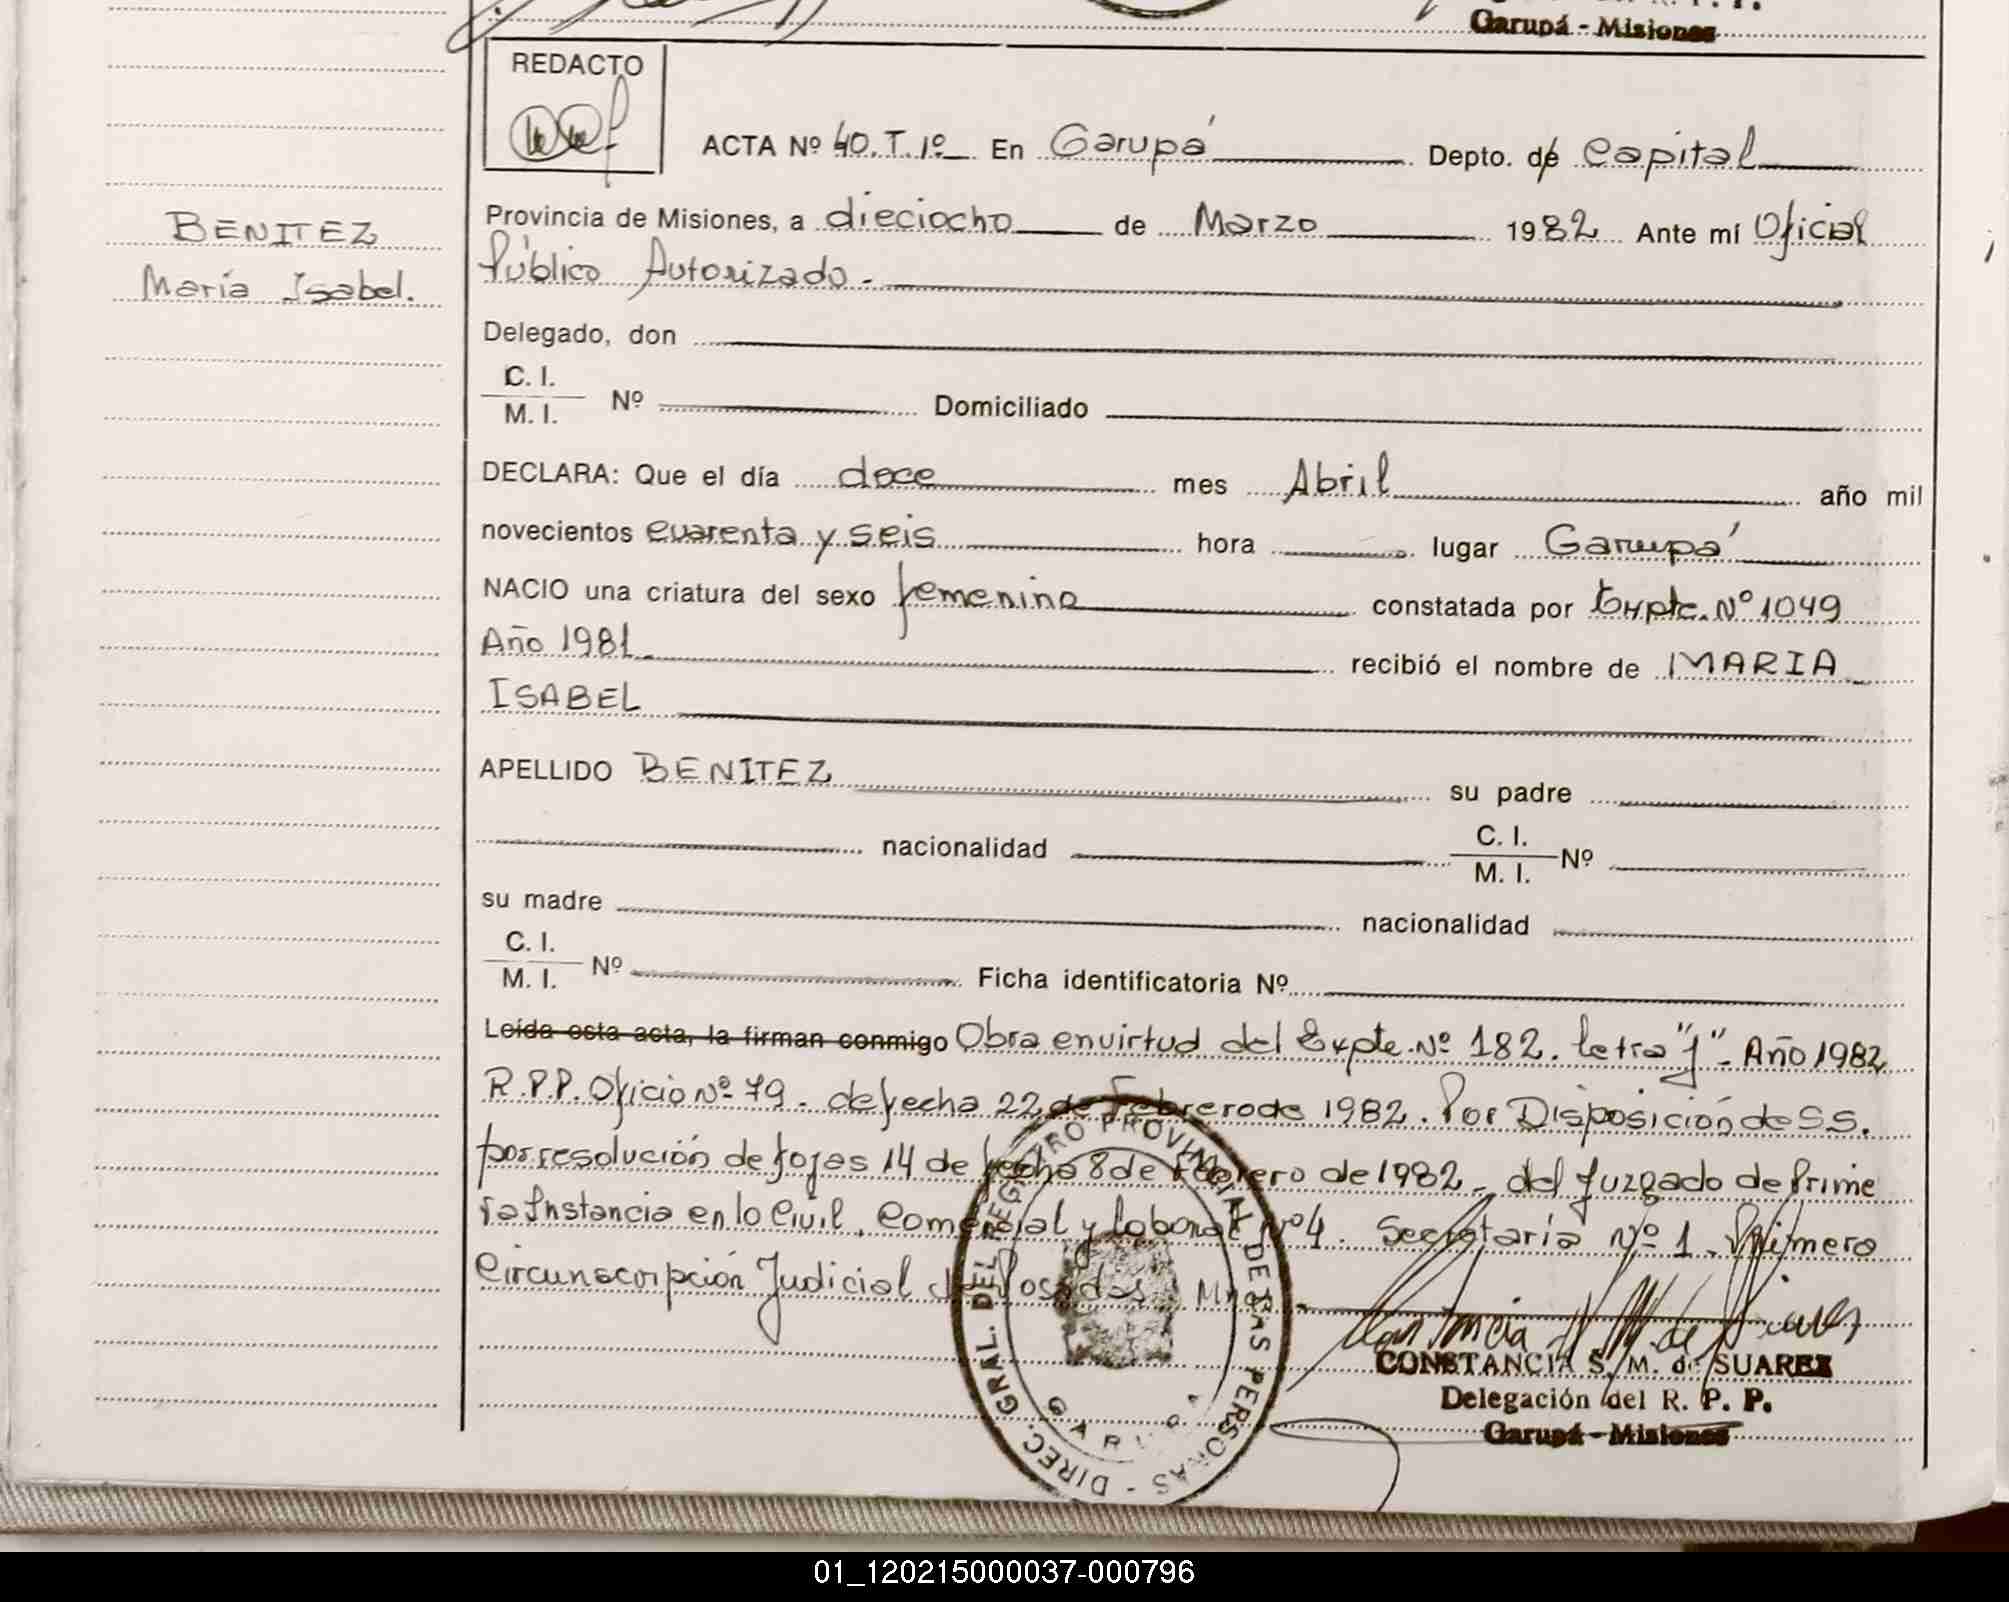 Garupá - Misiones
REDACTO
ACTA Nº 40. T. 1º En Garupá Depto. de Capital
BENITEZ
María Isabel.
Provincia de Misiones, a dieciocho de Marzo 1982 Ante mí Oficial
Público Autorizado.
Delegado, don
C. I.
M. I. Nº Domiciliado
DECLARA: Que el día doce mes Abril año mil
novecientos cuarenta y seis hora lugar Garupá
NACIO una criatura del sexo femenino constatada por Expte. Nº 1049
Año 1981 recibió el nombre de MARIA
ISABEL
APELLIDO BENITEZ su padre
nacionalidad C. I.
M. I. Nº
su madre nacionalidad
C. I.
M. I. Nº Ficha identificatoria Nº
Leída esta acta, la firman conmigo Obra en virtud del Expte. Nº 182. letra "J" - Año 1982
R.P.P. Oficio Nº 79 - de fecha 22 de Febrero de 1982. Por Disposición de S.S.
por resolución de fojas 14 de fecha 8 de Febrero de 1982 - del Juzgado de Prime
ra Instancia en lo Civil, Comercial y Laboral Nº 4. Secretaría Nº 1. Primera
Circunscripción Judicial de Posadas Mnes.
DIREC. GRAL. DEL REGISTRO PROVINCIAL DE LAS PERSONAS -
GARUPA
CONSTANCIA S. M. de SUAREZ
Delegación del R. P. P.
Garupá - Misiones
01_120215000037-000796